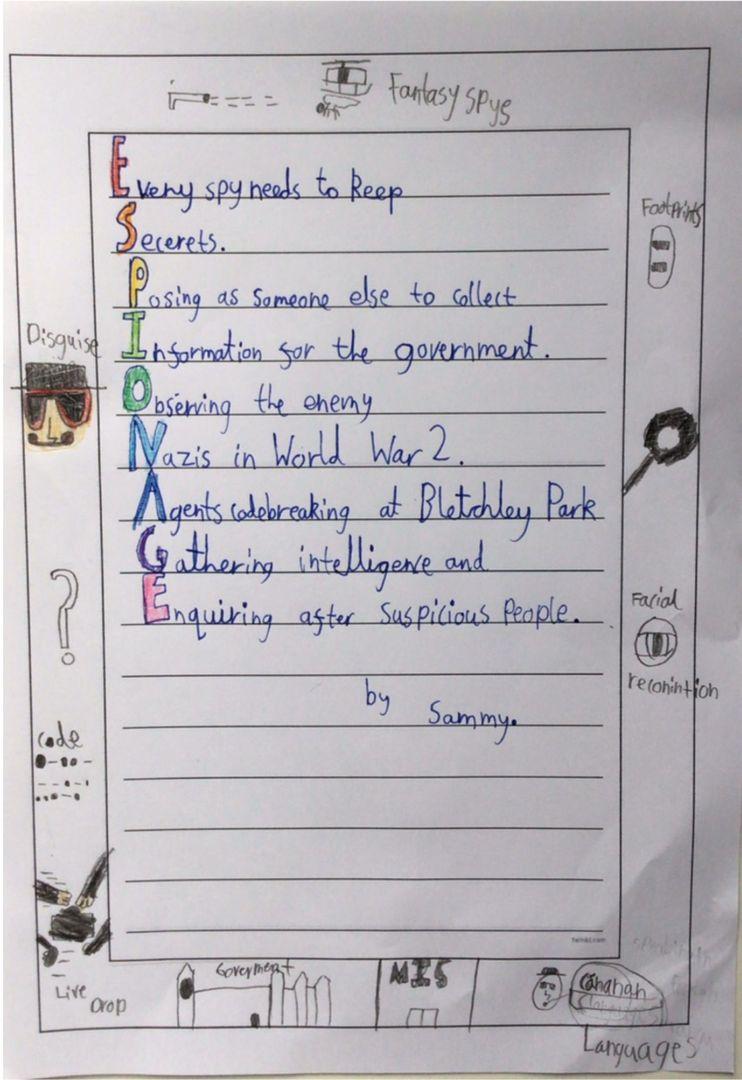 Fantasy spys
Every spy needs to keep
Secerets.
Posing as someone else to collect
Information for the government.
Observing the enemy
Nazis in World War 2.
Agents codebreaking at Bletchley Park
Gathering intelligence and
Enquiring after suspicious People.
by
Sammy.
Footprints
Facial
reconintion
Disguise
?
code
Live
Drop
Goverment
MI5
Languages
twinkl.com